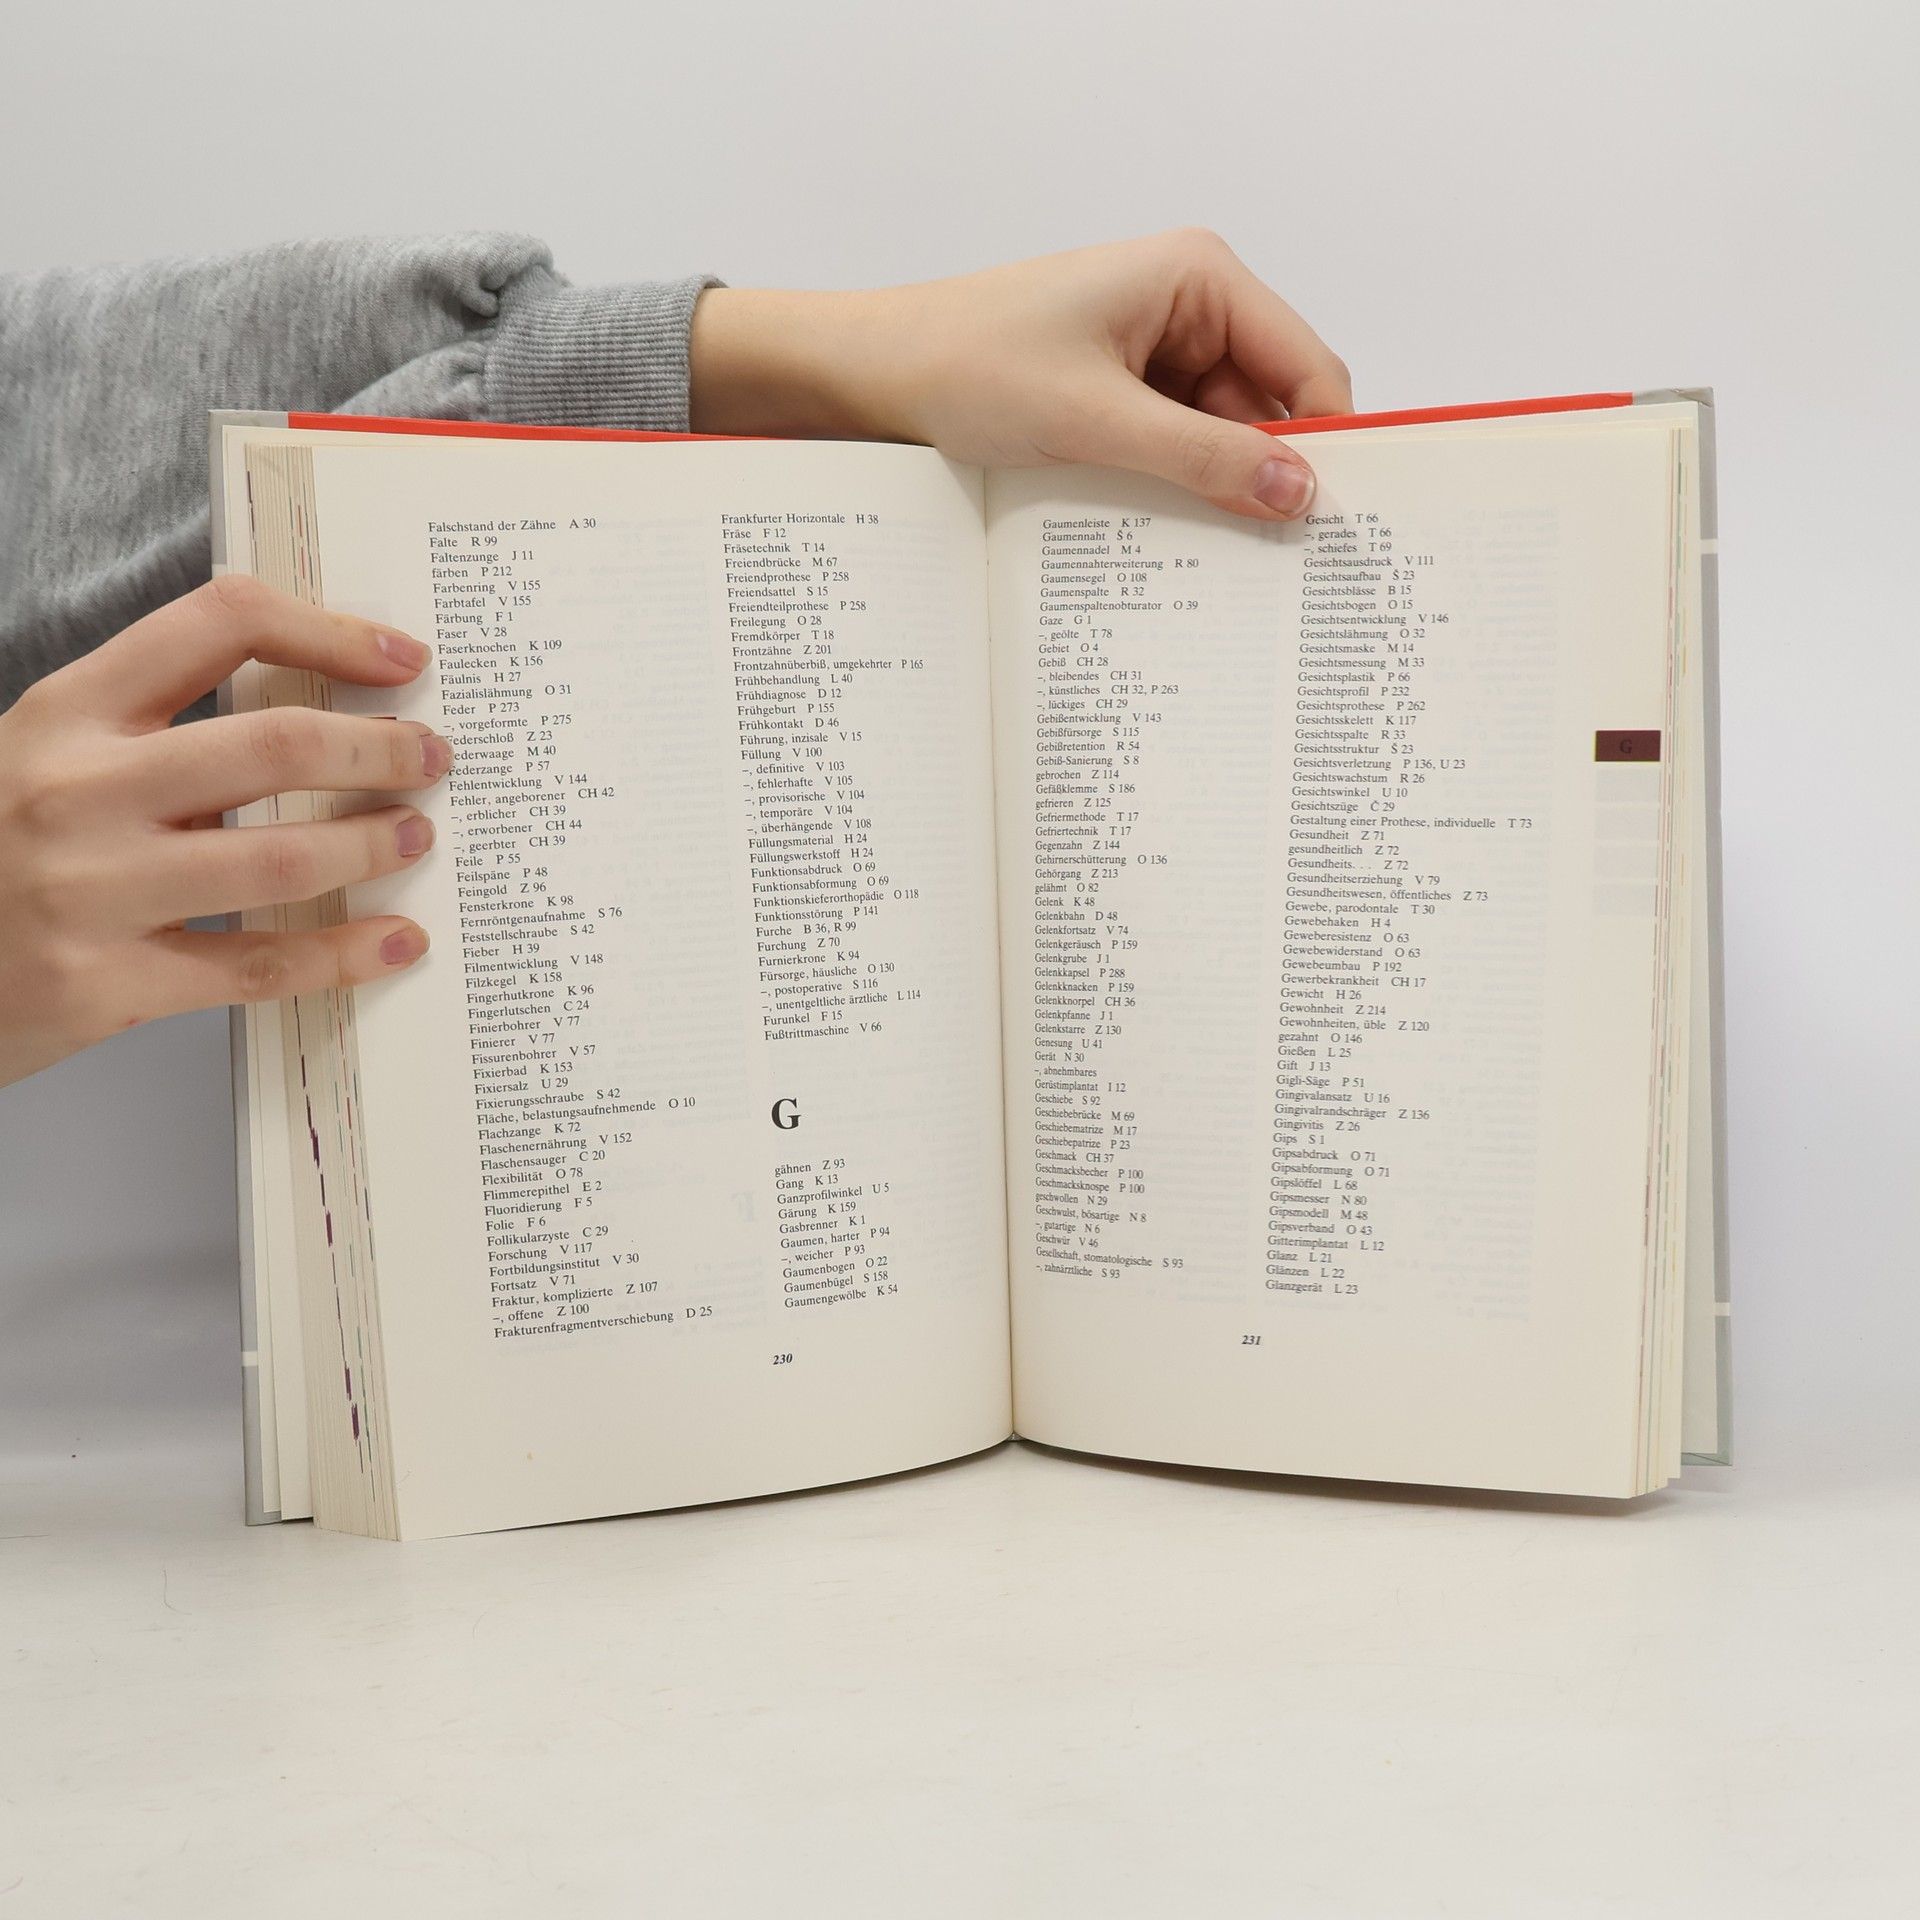 Falschstand der Zähne A 30
Falte R 99
Faltenzunge J 11
färben P 212
Farbenring V 155
Farbtafel V 155
Färbung F 1
Faser V 28
Faserknochen K 109
Faulecken K 156
Fäulnis H 27
Fazialislähmung O 31
Feder P 273
–, vorgeformte P 275
Federschloß Z 23
ederwaage M 40
Federzange P 57
Fehlentwicklung V 144
Fehler, angeborener CH 42
–, erblicher CH 39
–, erworbener CH 44
–, geerbter CH 39
Feile P 55
Feilspäne P 48
Feingold Z 96
Fensterkrone K 98
Fernröntgenaufnahme S 76
Feststellschraube S 42
Fieber H 39
Filmentwicklung V 148
Filzkegel K 158
Fingerhutkrone K 96
Fingerlutschen C 24
Finierbohrer V 77
Finierer V 77
Fissurenbohrer V 57
Fixierbad K 153
Fixiersalz U 29
Fixierungsschraube S 42
Fläche, belastungsaufnehmende O 10
Flachzange K 72
Flaschenernährung V 152
Flaschensauger C 20
Flexibilität O 78
Flimmerepithel E 2
Fluoridierung F 5
Folie F 6
Follikularzyste C 29
Forschung V 117
Fortbildungsinstitut V 30
Fortsatz V 71
Fraktur, komplizierte Z 107
–, offene Z 100
Frakturenfragmentverschiebung D 25
Frankfurter Horizontale H 38
Fräse F 12
Fräsetechnik T 14
Freiendbrücke M 67
Freiendprothese P 258
Freiendsattel S 15
Freiendteilprothese P 258
Freilegung O 28
Fremdkörper T 18
Frontzähne Z 201
Frontzahnüberbiß, umgekehrter P 165
Frühbehandlung L 40
Frühdiagnose D 12
Frühgeburt P 155
Frühkontakt D 46
Führung, inzisale V 15
Füllung V 100
–, definitive V 103
–, fehlerhafte V 105
–, provisorische V 104
–, temporäre V 104
–, überhängende V 108
Füllungsmaterial H 24
Füllungswerkstoff H 24
Funktionsabdruck O 69
Funktionsabformung O 69
Funktionskieferorthopädie O 118
Funktionsstörung P 141
Furche B 36, R 99
Furchung Z 70
Furnierkrone K 94
Fürsorge, häusliche O 130
–, postoperative S 116
–, unentgeltliche ärztliche L 114
Furunkel F 15
Fußtrittmaschine V 66
G
gähnen Z 93
Gang K 13
Ganzprofilwinkel U 5
Gärung K 159
Gasbrenner K 1
Gaumen, harter P 94
–, weicher P 93
Gaumenbogen O 22
Gaumenbügel S 158
Gaumengewölbe K 54
230
Gaumenleiste K 137
Gaumennaht Š 6
Gaumennadel M 4
Gaumennahterweiterung R 80
Gaumensegel O 108
Gaumenspalte R 32
Gaumenspaltenobturator O 39
Gaze G 1
–, geölte T 78
Gebiet O 4
Gebiß CH 28
–, bleibendes CH 31
–, künstliches CH 32, P 263
–, lückiges CH 29
Gebißentwicklung V 143
Gebißfürsorge S 115
Gebißretention R 54
Gebiß-Sanierung S 8
gebrochen Z 114
Gefäßklemme S 186
gefrieren Z 125
Gefriermethode T 17
Gefriertechnik T 17
Gegenzahn Z 144
Gehirnerschütterung O 136
Gehörgang Z 213
gelähmt O 82
Gelenk K 48
Gelenkbahn D 48
Gelenkfortsatz V 74
Gelenkgeräusch P 159
Gelenkgrube J 1
Gelenkkapsel P 288
Gelenkknacken P 159
Gelenkknorpel CH 36
Gelenkpfanne J 1
Gelenkstarre Z 130
Genesung U 41
Gerät N 30
–, abnehmbares
Gerüstimplantat I 12
Geschiebe S 92
Geschiebebrücke M 69
Geschiebematrize M 17
Geschiebepatrize P 23
Geschmack CH 37
Geschmacksbecher P 100
Geschmacksknospe P 100
geschwollen N 29
Geschwulst, bösartige N 8
–, gutartige N 6
Geschwür V 46
Gesellschaft, stomatologische S 93
–, zahnärztliche S 93
Gesicht T 66
–, gerades T 66
–, schiefes T 69
Gesichtsausdruck V 111
Gesichtsaufbau Š 23
Gesichtsblässe B 15
Gesichtsbogen O 15
Gesichtsentwicklung V 146
Gesichtslähmung O 32
Gesichtsmaske M 14
Gesichtsmessung M 33
Gesichtsplastik P 66
Gesichtsprofil P 232
Gesichtsprothese P 262
Gesichtsskelett K 117
Gesichtsspalte R 33
Gesichtsstruktur Š 23
Gesichtsverletzung P 136, U 23
Gesichtswachstum R 26
Gesichtswinkel U 10
Gesichtszüge Č 29
Gestaltung einer Prothese, individuelle T 73
Gesundheit Z 71
gesundheitlich Z 72
Gesundheits. . . Z 72
Gesundheitserziehung V 79
Gesundheitswesen, öffentliches Z 73
Gewebe, parodontale T 30
Gewebehaken H 4
Geweberesistenz O 63
Gewebewiderstand O 63
Gewebeumbau P 192
Gewerbekrankheit CH 17
Gewicht H 26
Gewohnheit Z 214
Gewohnheiten, üble Z 120
gezahnt O 146
Gießen L 25
Gift J 13
Gigli-Säge P 51
Gingivalansatz U 16
Gingivalrandschräger Z 136
Gingivitis Z 26
Gips S 1
Gipsabdruck O 71
Gipsabformung O 71
Gipslöffel L 68
Gipsmesser N 80
Gipsmodell M 48
Gipsverband O 43
Gitterimplantat L 12
Glanz L 21
Glänzen L 22
Glanzgerät L 23
231
G